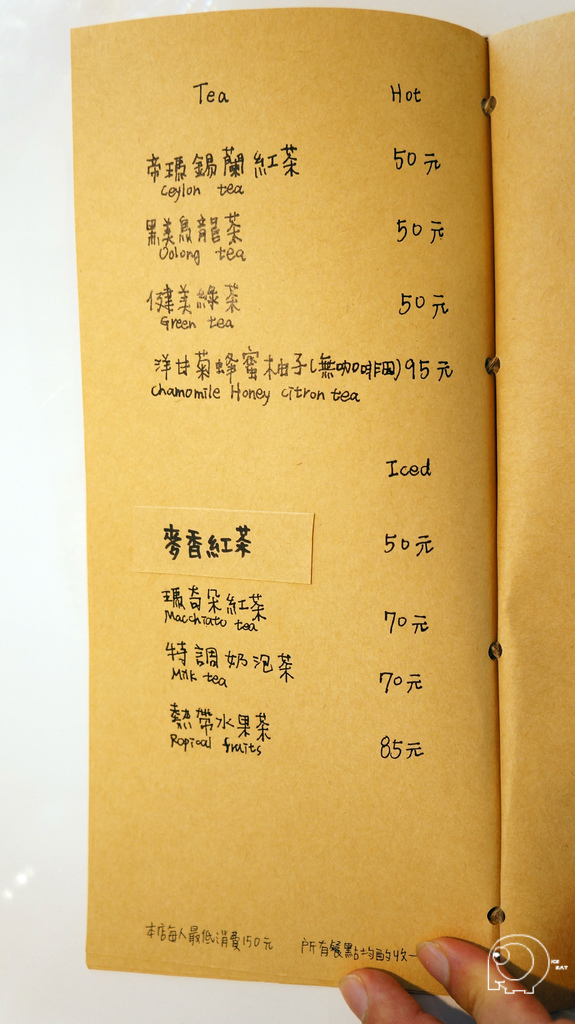 Tea Hot
帝瑪錫蘭紅茶 50元
Ceylon tea
黑美烏龍茶 50元
Oolong tea
健美綠茶 50元
Green tea
洋甘菊蜂蜜柚子(無咖啡因) 95元
Chamomile Honey citron tea
Iced
麥香紅茶 50元
瑪奇朵紅茶 70元
Macchiato tea
特調奶泡茶 70元
Milk tea
熱帶水果茶 85元
Ropical fruits
本店每人最低消費150元 所有餐點均酌收一
ICE
EAT